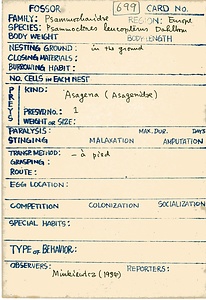 FOSSOR 699 CARD NO.
FAMILY: Psammocharidae REGION: Europe
SPECIES: Psammochares leucopterus Dahlbom
BODY WEIGHT BODY LENGTH
NESTING GROUND: in the ground
CLOSING MATERIALS:
BURROWING HABIT:
NO. CELLS IN EACH NEST
PREYS KIND: Asagena (Asagenidae)
PREYS NO.: 1
WEIGHT OR SIZE:
PARALYSIS: MAX. DUR. DAYS
STINGING MALAXATION AMPUTATION
TRANSP. METHOD: - à pied
GRASPING:
ROUTE:
EGG LOCATION:
COMPETITION COLONIZATION SOCIALIZATION
SPECIAL HABITS:
TYPE OF BEHAVIOR:
OBSERVERS: REPORTERS:
Minkiewicz